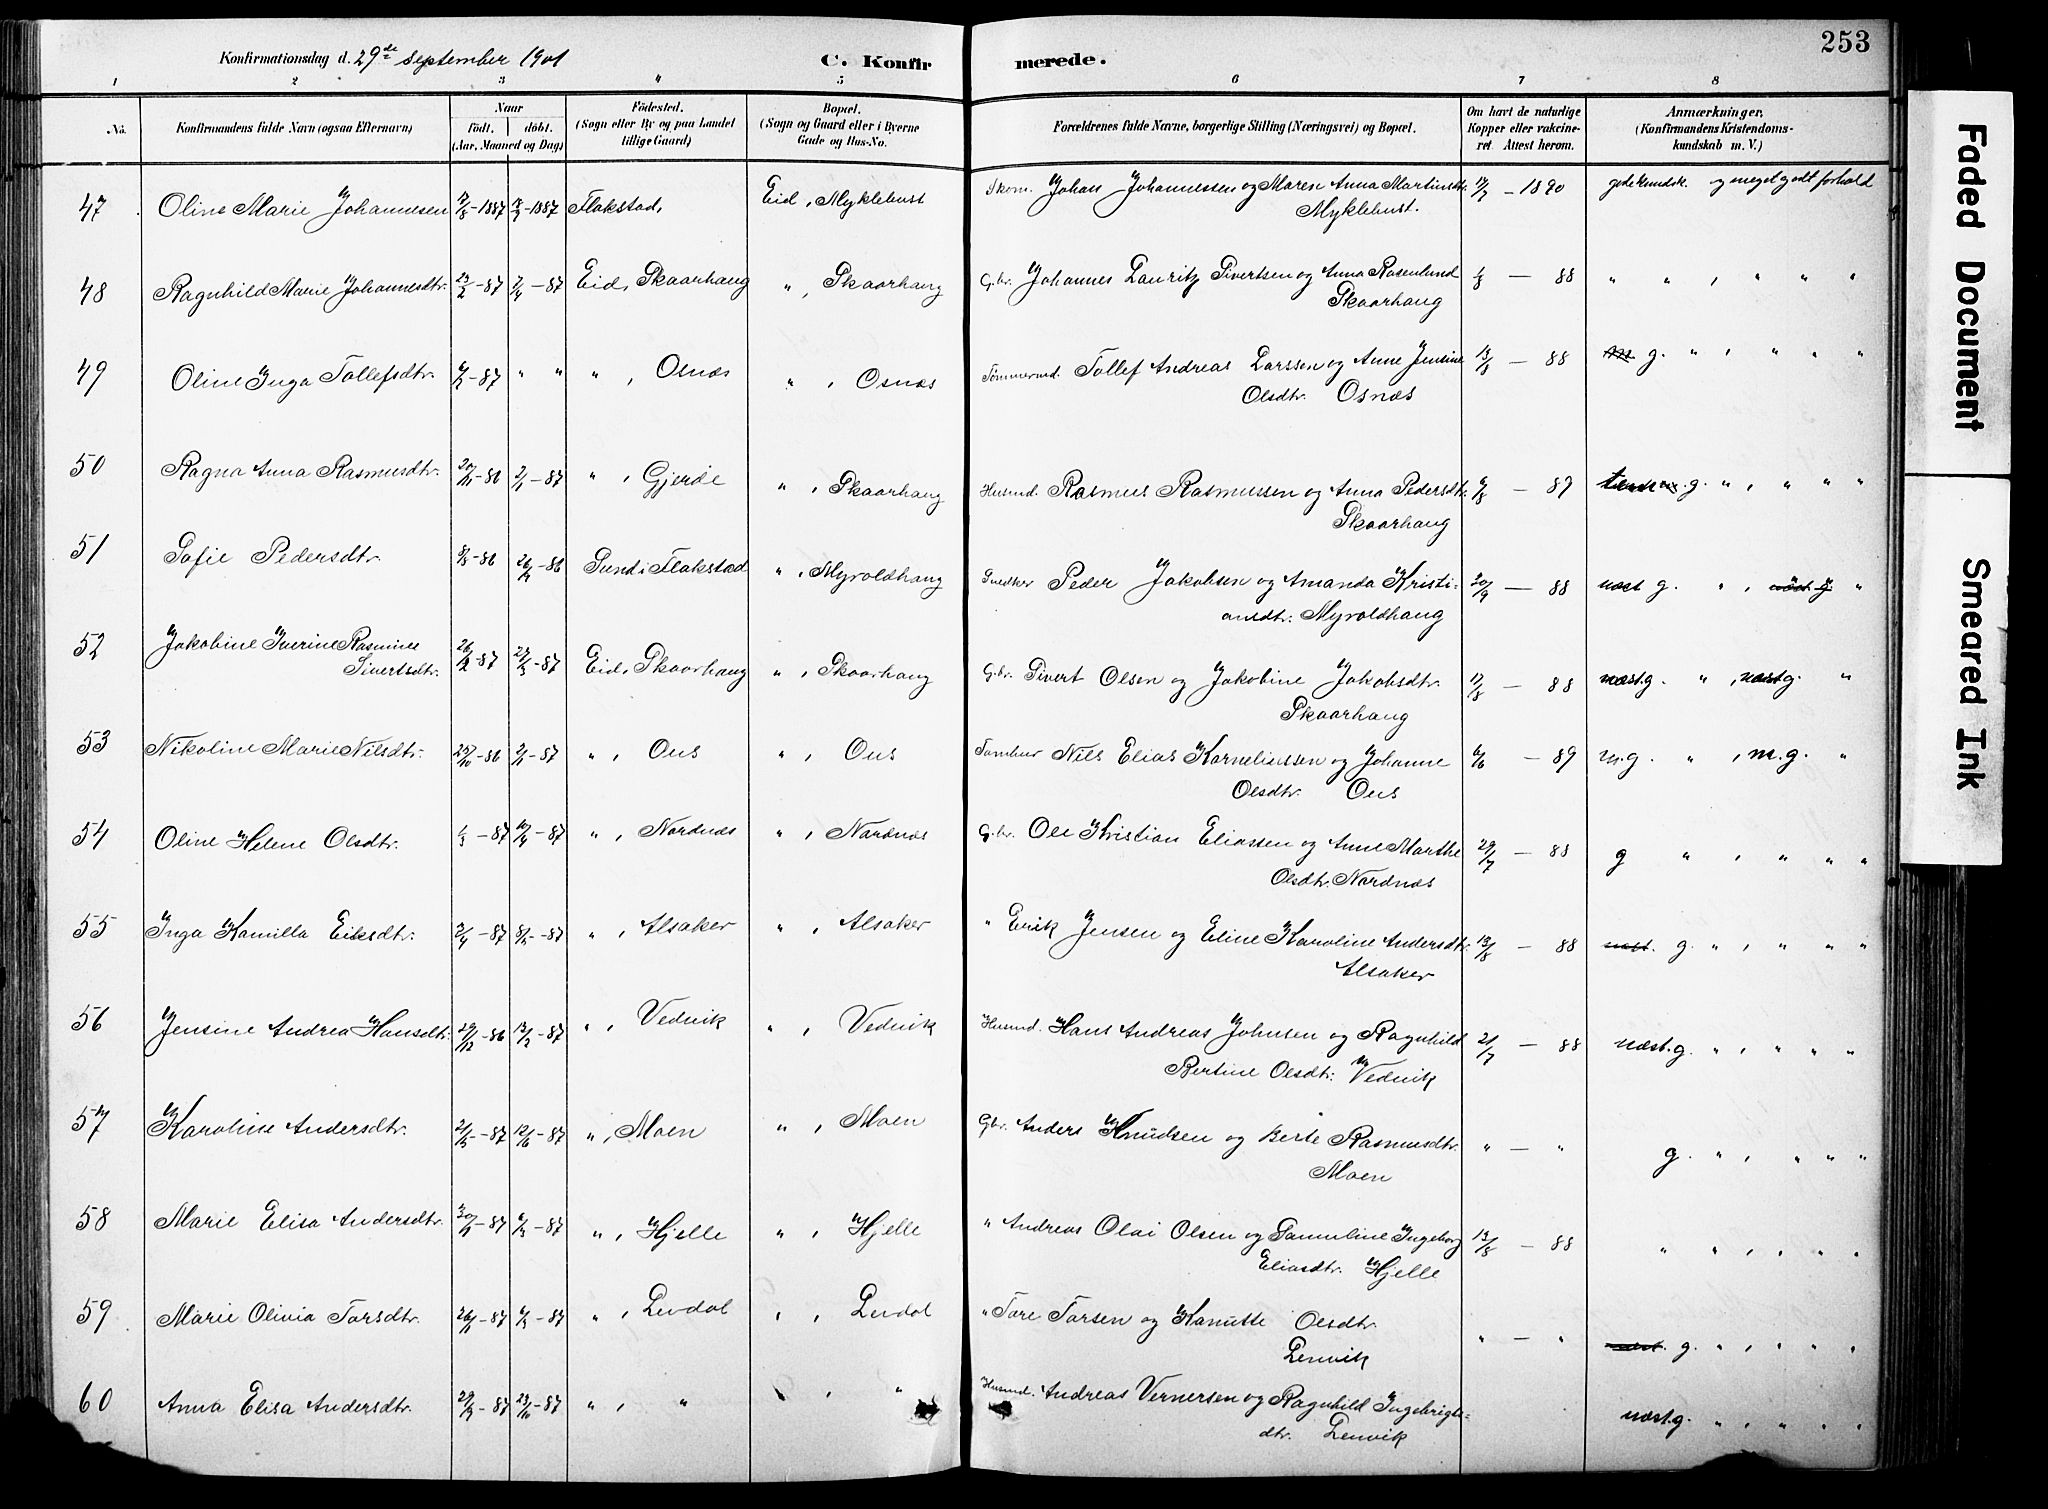 Konfirmationsdag d. 29de september 1901
C. Konfir merede.
253
1 2 3 " 5 6 7 8
No.
Konfirmandens fulde Navn (ogsaa Efternavn)
Naar
født. døbt.
(Aar, Maaned og Dag)
Fødested.
(Sogn eller By og paa Landet
tillige Gaard)
Bopæl.
(Sogn og Gaard eller i Byerne
Gade og Hus-No.
Forældrenes fulde Navne, borgerlige Stilling (Næringsvei) og Bopæl.
Om havt de naturlige
Kopper eller vakcine-
ret. Attest herom.
Anmærkninger,
(Konfirmandens Kristendoms-
kundskab m. V.)
47 Oline Marie Johannesen -1887 -1887 Flakstad, Eid, Myklebust Skom. Johan Johannessen og Maren Anna Martinsdtr. -1890 gode kundsk. og meget godt forhold
Myklebust.
48 Ragnhild Marie Johannesdtr. 23/2-87 -87 Eid, Skaarhaug ", Skaarhaug G.br. Johannes Lauritz Sivertsen og Anna Rosenlund — 88 " " , " " "
Skaarhaug
49 Oline Inga Tollefsdtr. -87 " " ", Osnæs ", Osnæs Tømmermd. Tollef Andreas Larssen og Anne Jensine 13/8 — 88 g. " , " " "
Olsdtr. Osnæs
50 Ragna Anna Rasmusdtr. 20/11-86 2/1-87 ", Gjerde ", Skaarhaug Husmd. Rasmus Rasmussen og Anna Pedersdtr. — 87 g. " , " " "
Skaarhaug
51 Sofie Pedersdtr. -86 -86 Sund i Flakstad ", Myroldhaug Snedker Peder Jakobsen og Amanda Kristi- 30/9 — 88 næst g. " , næst. g "
ansdtr. Myroldhaug
52 Jakobine Iverine Rasmine
Sivertsdtr. 26/2-87 27/3-87 Eid, Skaarhaug ", Skaarhaug G.br. Sivert Olsen og Jakobine Jakobsdtr. 17/8 — 88 næst.g. " , næst g. "
Skaarhaug
53 Nikoline Marie Nilsdtr. 23/10-86 2/1-87 ", Ous ", Ous Tambur Nils Elias Korneliussen og Johanne — 89 m.g. " , m.g. "
Olsdtr. Ous
54 Oline Helene Olsdtr. 1/3-87 10/4-87 ", Nordnæs ", Nordnæs G.br. Ole Kristian Eliassen og Anne Marthe 29/7 — 88 g " , " " "
Olsdtr. Nordnæs
55 Inga Kamilla Eiksdtr. 2/4-87 8/5-87 ", Alsaker ", Alsaker " Erik Jensen og Eline Karoline Andersdtr. 13/8 — 88 næst. g. " , " " "
Alsaker
56 Jensine Andrea Hansdtr. 29/12-86 13/2-87 ", Vedvik ", Vedvik Husmd. Hans Andreas Johnsen og Ragnhild 21/7 — 88 næst.g. " , " " "
Bertine Olsdtr. Vedvik
57 Karoline Andersdtr. 21/5-87 12/6-87 ", Moen ", Moen Gbr. Anders Knudsen og Berte Rasmusdtr. " — " g. " , " " "
Moen
58 Marie Elisa Andersdtr. 30/1-87 6/3-87 ", Hjelle ", Hjelle " Andreas Olai Olsen og Samueline Ingeborg 13/8 — 88 " " , " "
Eliasdtr. Hjelle
59 Marie Olivia Torsdtr. 26/1-87 6/3-87 ", Levdal ", Levdal " Tore Torsen og Kanutte Olsdtr. " — " næst. g. " , " " "
Lenvik
60 Anna Elisa Andersdtr. 29/9-87 23/10-87 ", " , " Husmd. Andreas Vernersen og Ragnhild Ingebrigts- næst.g. " , " " "
dtr. Lenvik
Faded Document
Smeared Ink